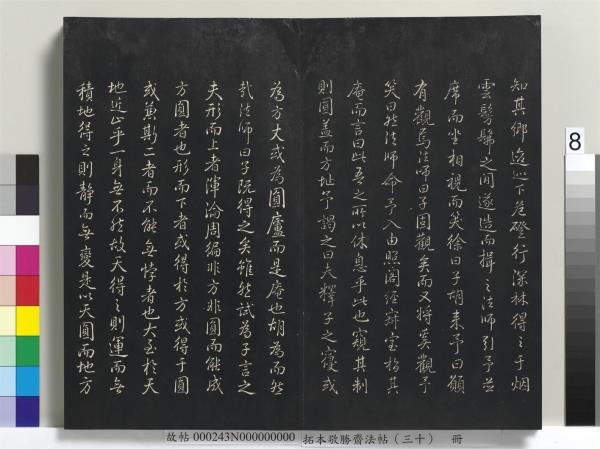 知其鄉逡巡下危磴行深林得之于烟
雲髣髴之間遂造而揖之法師引予並
席而坐相視而笑徐曰子胡来予曰願
有觀焉法師曰子固觀矣而又將奚觀予
笑曰然法師命予入由照閣經寂室指其
庵而言曰此吾之所以休息乎此也窺其制
則圓蓋而方址予謁之曰夫釋子之寢或
為方丈或為圓廬而是庵也胡為而然
哉法師曰子既得之矣雖然試為子言之
夫形而上者渾淪周徧非方非圓而能成
方圓者也形而下者或得於方或得于圓
或兼斯二者而不能無悖者也大至於天
地近止乎一身無不然故天得之則運而無
積地得之則静而無變是以天圓而地方
故帖 000243N000000000 拓本敬勝齋法帖(三十) 冊
8